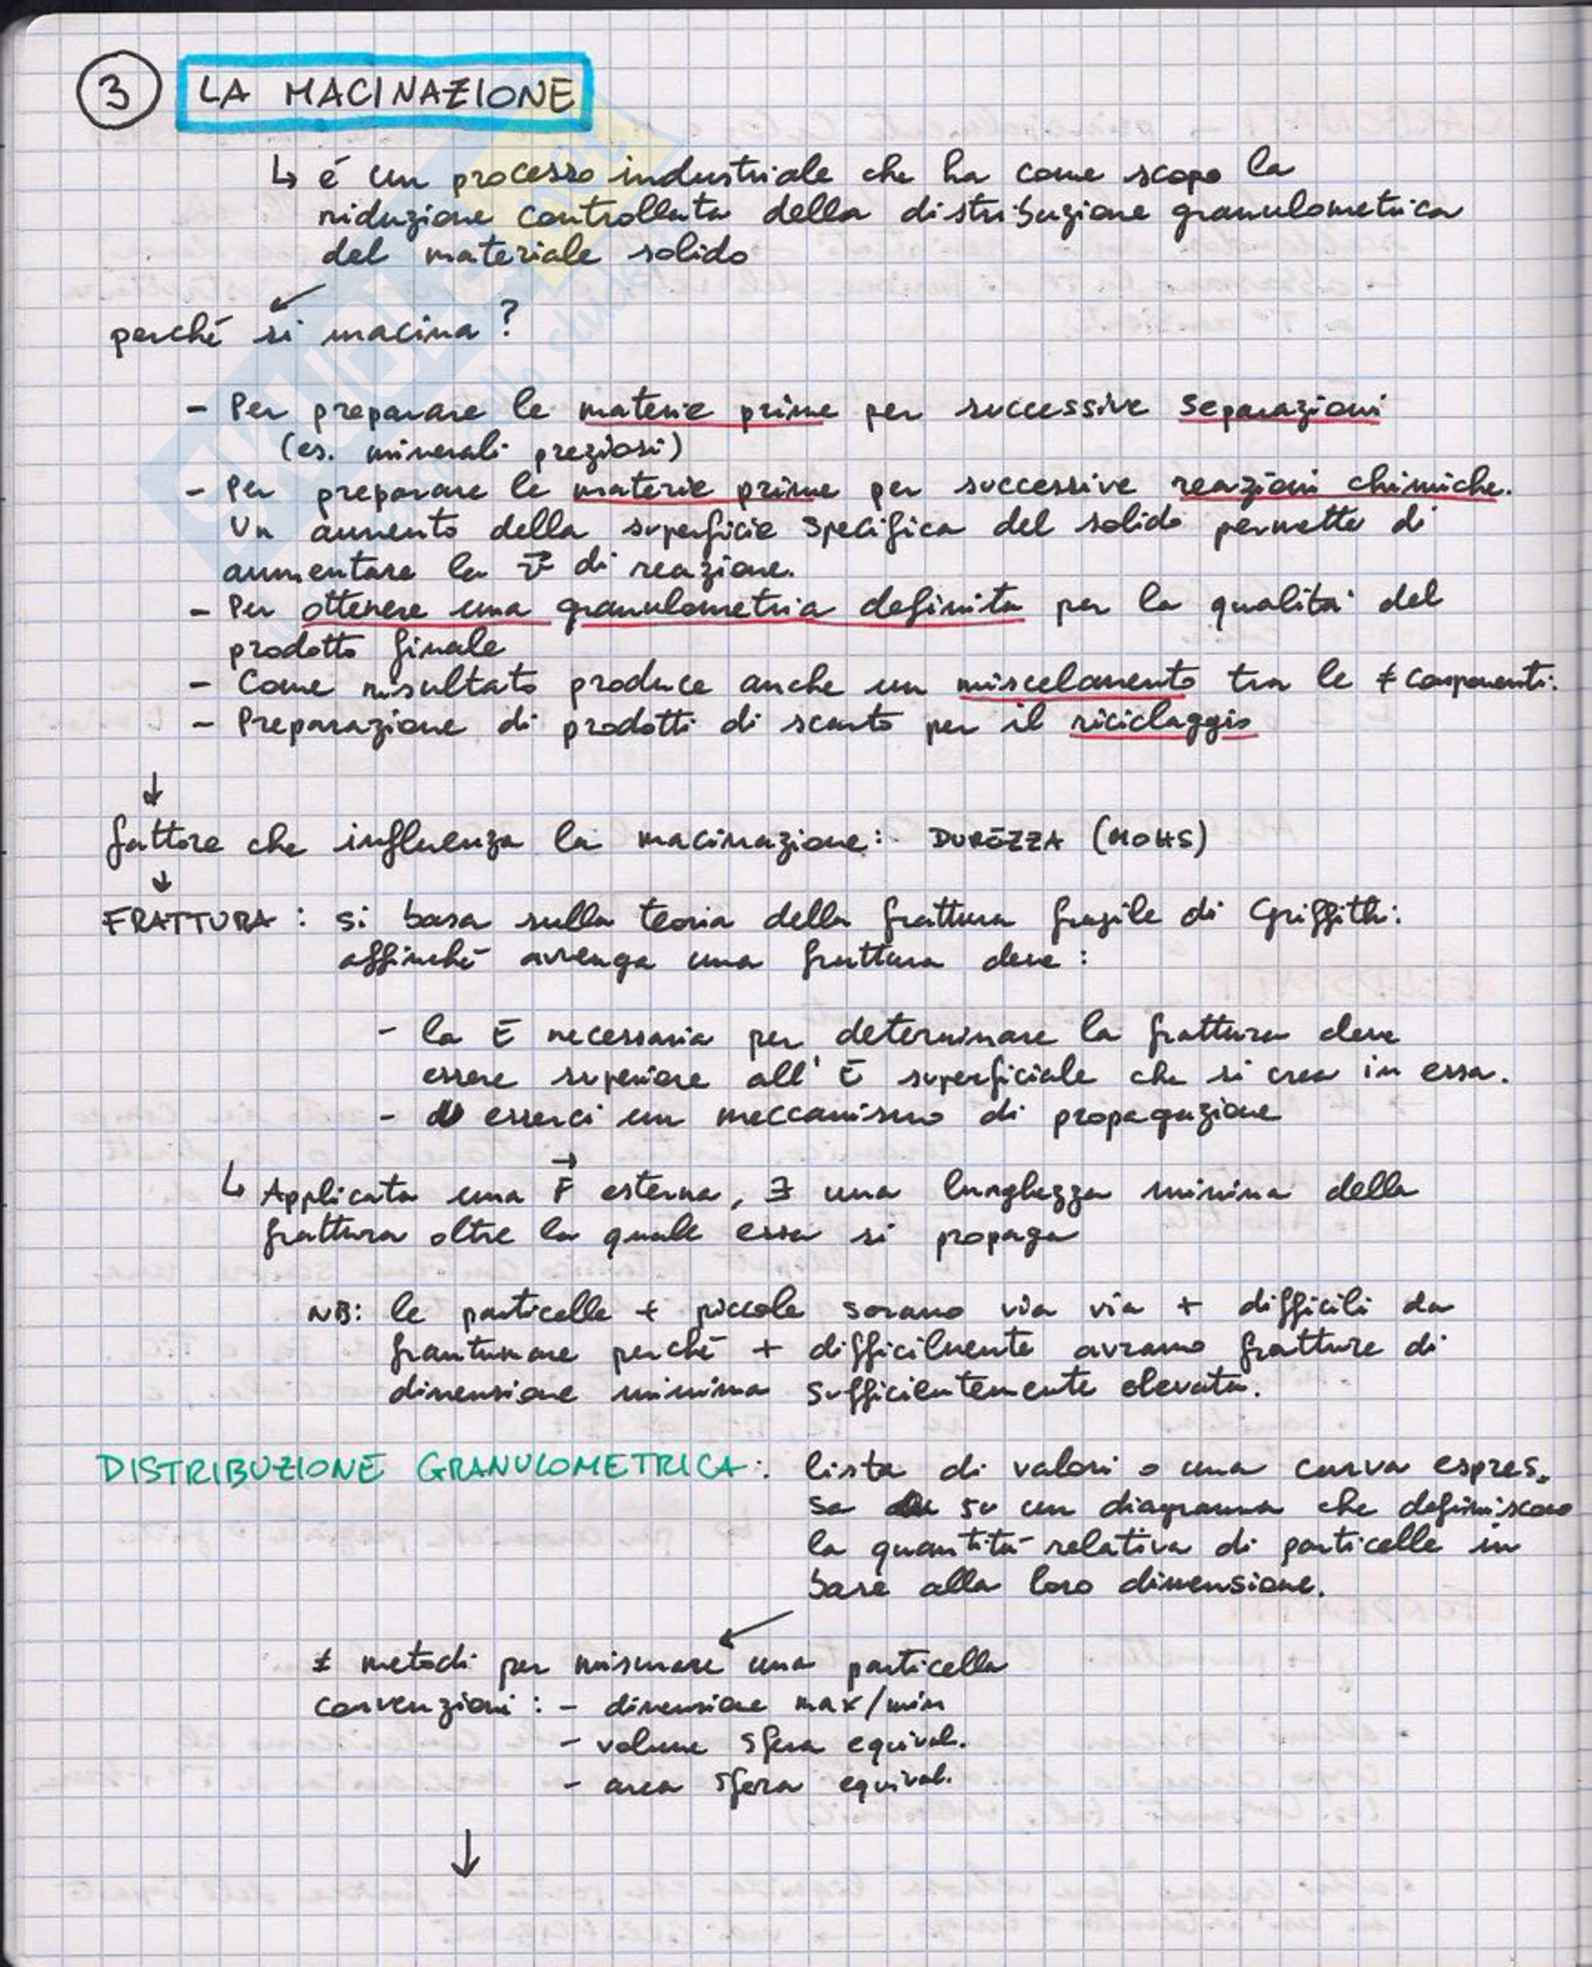 3 LA MACINAZIONE
↳ é un processo industriale che ha come scopo la
riduzione controllata della distribuzione granulometrica
del materiale solido
perché si macina?
- Per preparare le materie prime per successive separazioni
(es. minerali preziosi)
- Per preparare le materie prime per successive reazioni chimiche.
Un aumento della superficie specifica del solido permette di
aumentare la v⃗ di reazione.
- Per ottenere una granulometria definita per la qualità del
prodotto finale
- Come risultato produce anche un miscelamento tra le ≠ componenti.
- Preparazione di prodotti di scarto per il riciclaggio
↓
fattore che influenza la macinazione: DUREZZA (MOHS)
↓
FRATTURA: si basa sulla teoria della frattura fragile di Griffith:
affinché avvenga una frattura deve:
- la E necessaria per determinare la frattura deve
essere superiore all'E superficiale che si crea in essa.
- esserci un meccanismo di propagazione
↳ Applicata una F⃗ esterna, ∃ una lunghezza minima della
frattura oltre la quale essa si propaga
NB: le particelle + piccole saranno via via + difficili da
frantumare perché + difficilmente avranno fratture di
dimensione minima sufficientemente elevata.
DISTRIBUZIONE GRANULOMETRICA: lista di valori o una curva espres_
sa su un diagramma che definiscono
la quantità relativa di particelle in
base alla loro dimensione.
≠ metodi per misurare una particella
convenzioni: - dimensione max/min
- volume sfera equival.
- area sfera equival.
↓